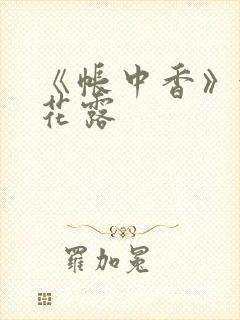 《帳中香》
花露
羅加冕